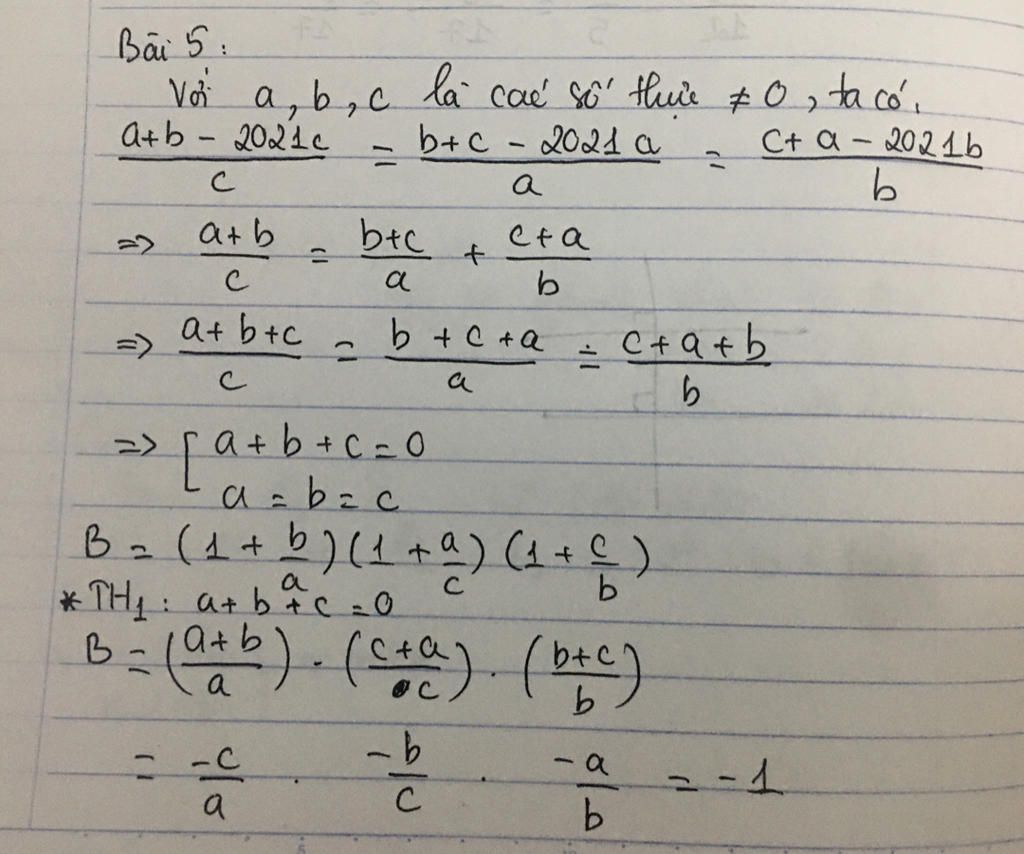 Bài 5:
Với a, b, c là các số thực ≠ 0, ta có.
(a+b - 2021c)/c = (b+c - 2021a)/a = (c+a - 2021b)/b
=> (a+b)/c = (b+c)/a + (c+a)/b
=> (a+b+c)/c = (b+c+a)/a = (c+a+b)/b
=> [ a+b+c=0
a = b = c
B = (1 + b/a)(1 + a/c)(1 + c/b)
*TH1: a+b+c=0
B = ((a+b)/a) . ((c+a)/c) . ((b+c)/b)
= -c/a . -b/c . -a/b = -1